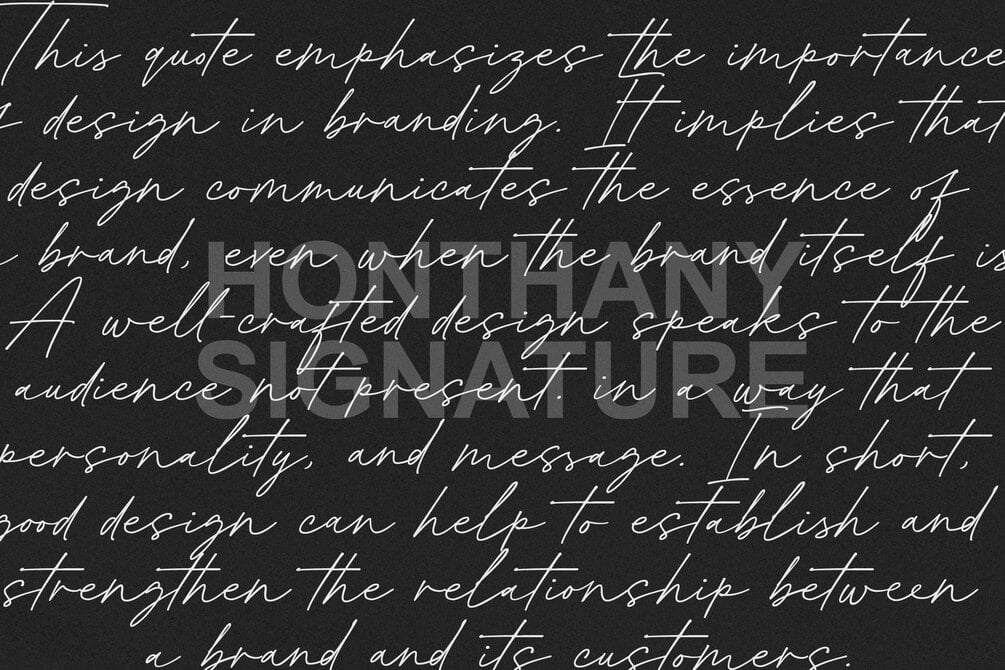 This quote emphasizes the importance
of design in branding. It implies that
design communicates the essence of
a brand, even when the brand itself is
HONTHANY
A well-crafted design speaks to the
SIGNATURE
audience not present. in a way that
personality, and message. In short,
good design can help to establish and
strengthen the relationship between
a brand and its customers.